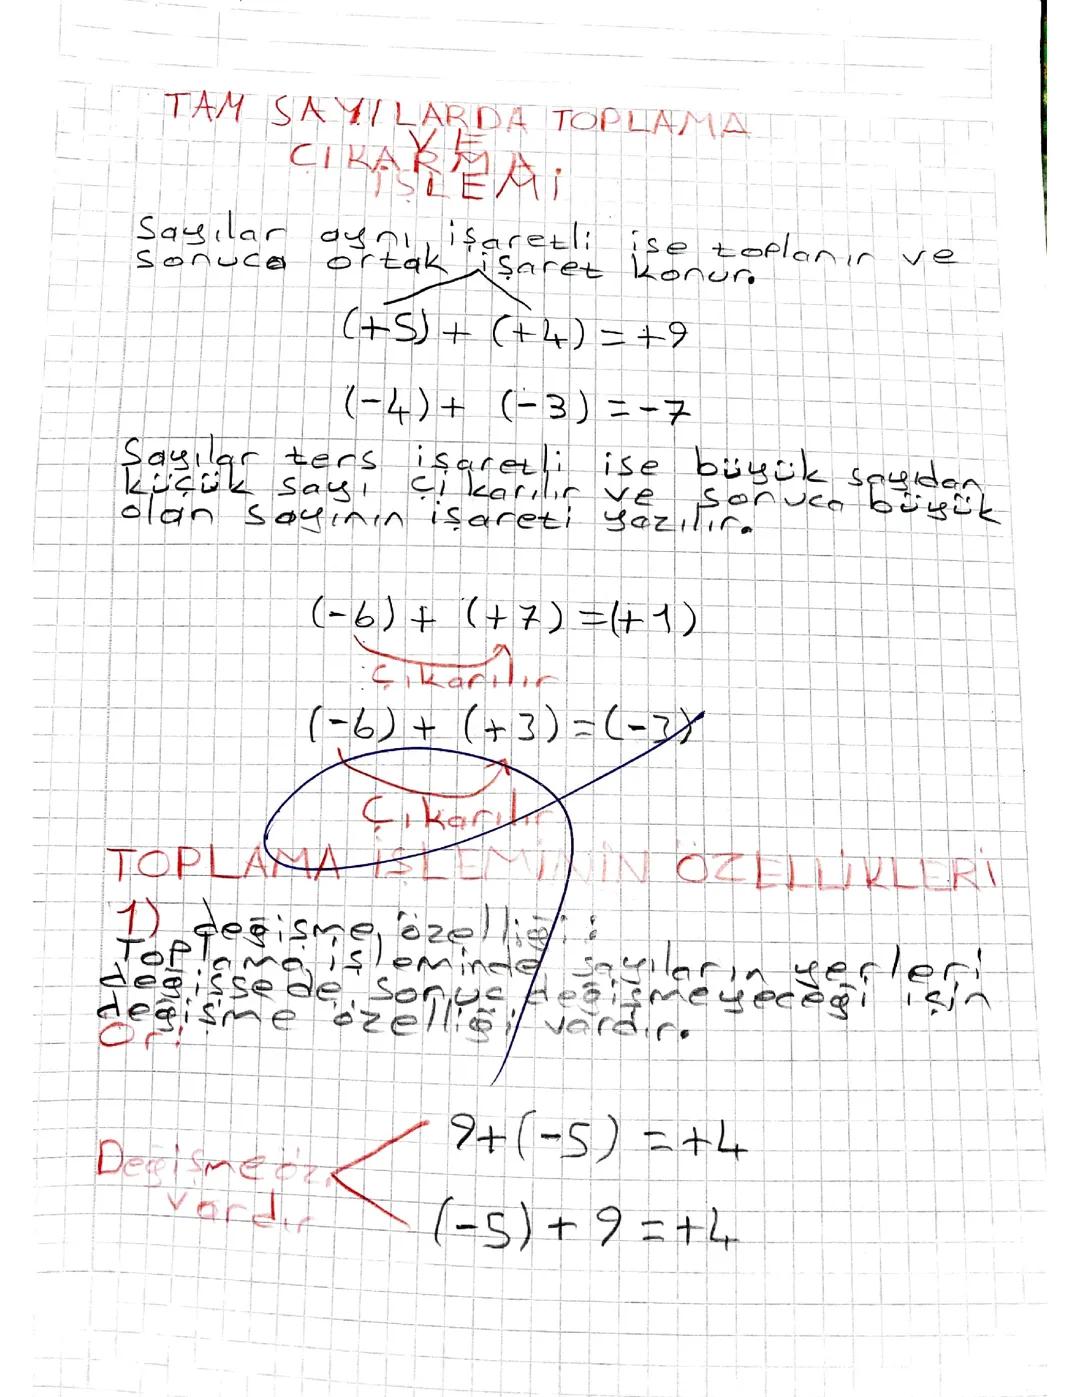 TAM SAYILARDA TOPLAMA
VE
ÇIKARMA
İŞLEMİ
Sayılar aynı işaretli ise toplanır ve
sonuca ortak işaret konur.
(+5) + (+4) = +9
(-4) + (-3) = -7
Sayılar ters işaretli ise büyük sayıdan
küçük sayı çıkarılır ve sonuca büyük
olan sayının işareti yazılır.
(-6) + (+7) = (+1)
Çıkarılır
(-6) + (+3) = (-3)
Çıkarılır
TOPLAMA İŞLEMİNİN ÖZELLİKLERİ
1) değişme özelliği:
Toplama işleminde sayıların yerleri
değişsede sonuç değişmeyeceği için
değişme özelliği vardır.
Ör:
9+(-5) = +4
Değişme öz.
vardır
(-5) + 9 = +4